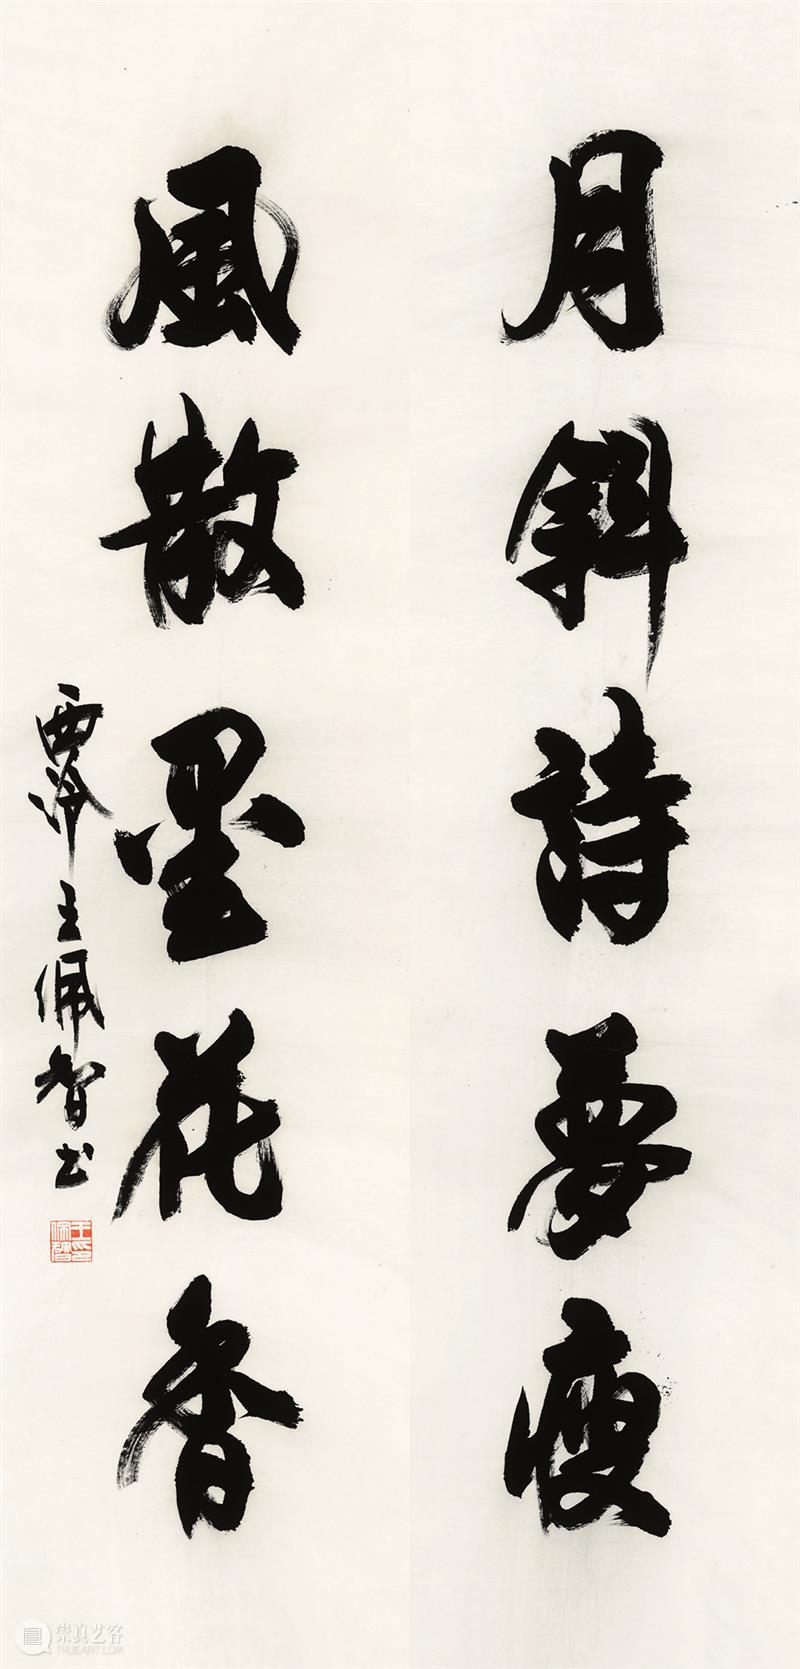 月斜詩夢瘦
風散墨花香
西泠王佩智书
王佩智印
崇真艺客
TRUEART.COM